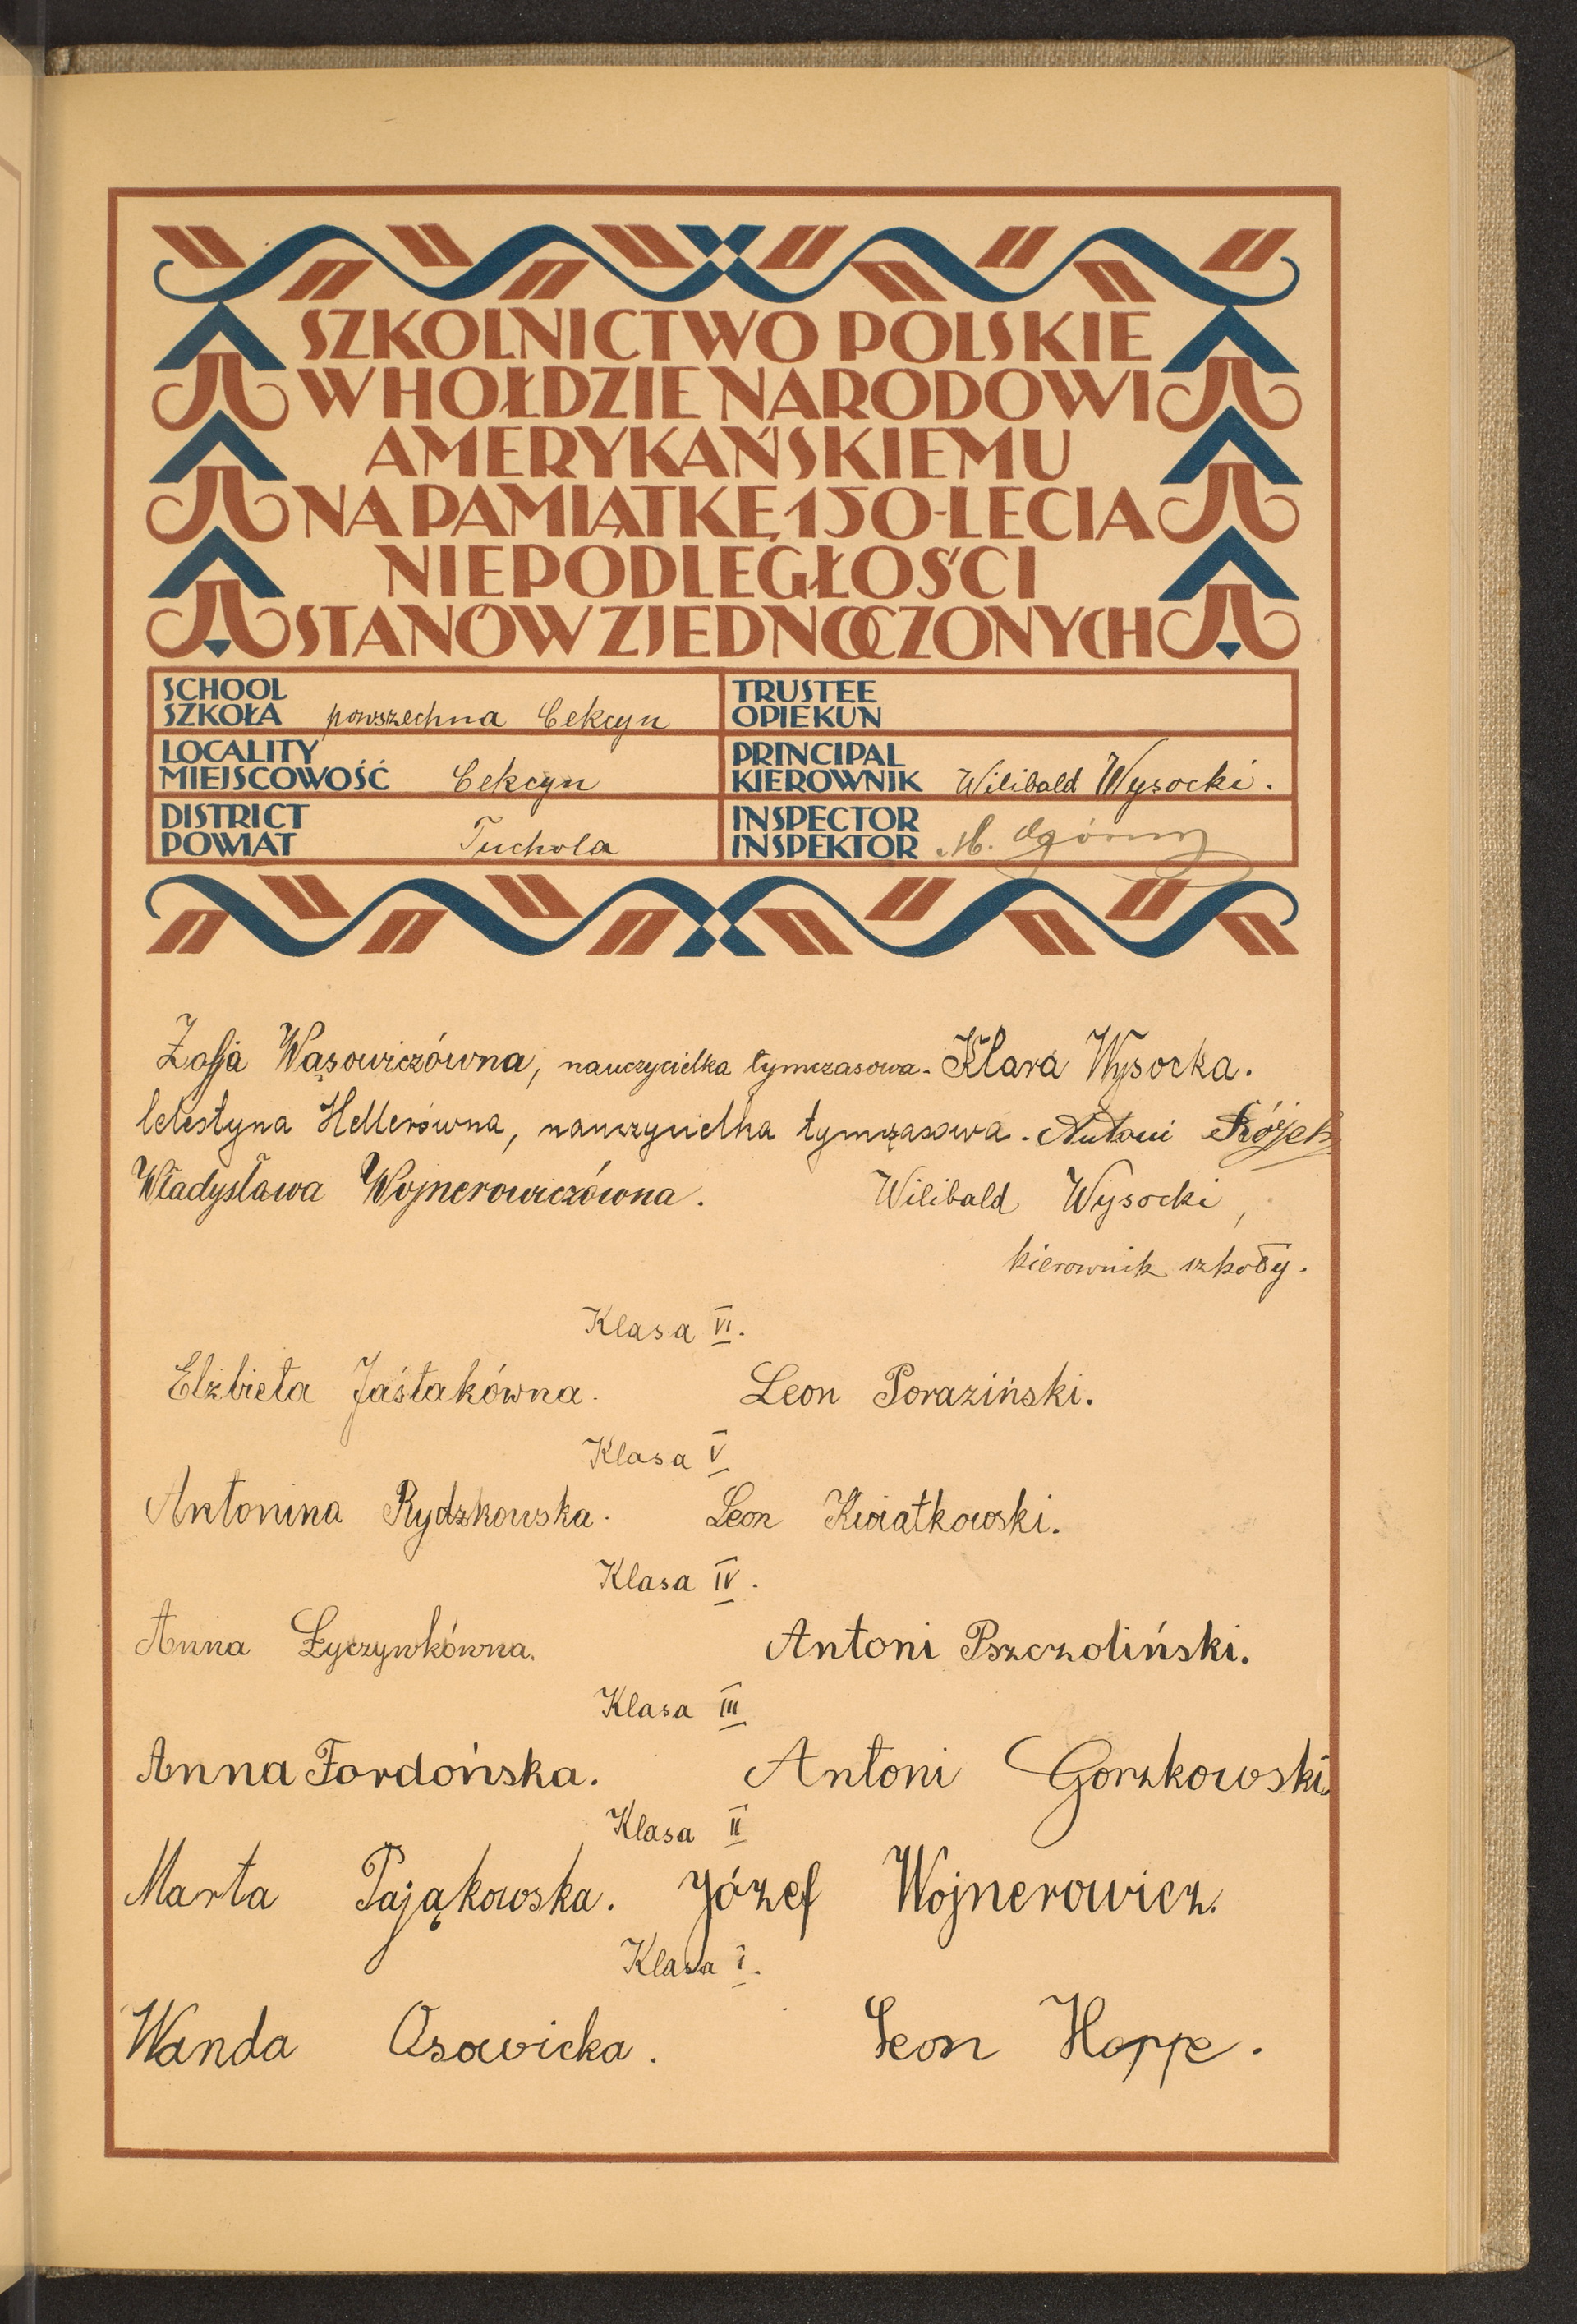 SZKOLNICTWO POLSKIE
W HOŁDZIE NARODOWI
AMERYKAŃSKIEMU
NA PAMIĄTKĘ 150-LECIA
NIEPODLEGŁOŚCI
STANÓW ZJEDNOCZONYCH
SCHOOL
SZKOŁA powszechna Cekcyn
TRUSTEE
OPIEKUN
LOCALITY
MIEJSCOWOŚĆ Cekcyn
PRINCIPAL
KIEROWNIK Wilibald Wysocki.
DISTRICT
POWIAT Tuchola
INSPECTOR
INSPEKTOR M.
Zofja Wąsowiczówna, nauczycielka tymczasowa. Klara Wysocka.
Celestyna Hellerówna, nauczycielka tymczasowa. Antoni Różek
Władysława Wojnerowiczówna. Wilibald Wysocki,
kierownik szkoły.
Klasa VI.
Elżbieta Jaśtakówna. Leon Poraziński.
Klasa V
Antonina Rydzkowska. Leon Kwiatkowski.
Klasa IV.
Anna Łyczywkówna. Antoni Pszczoliński.
Klasa III
Anna Fordońska. Antoni Gorzkowski.
Klasa II
Marta Pająkowska. Józef Wojnerowicz.
Klasa I.
Wanda Osowicka. Leon Hoppe.